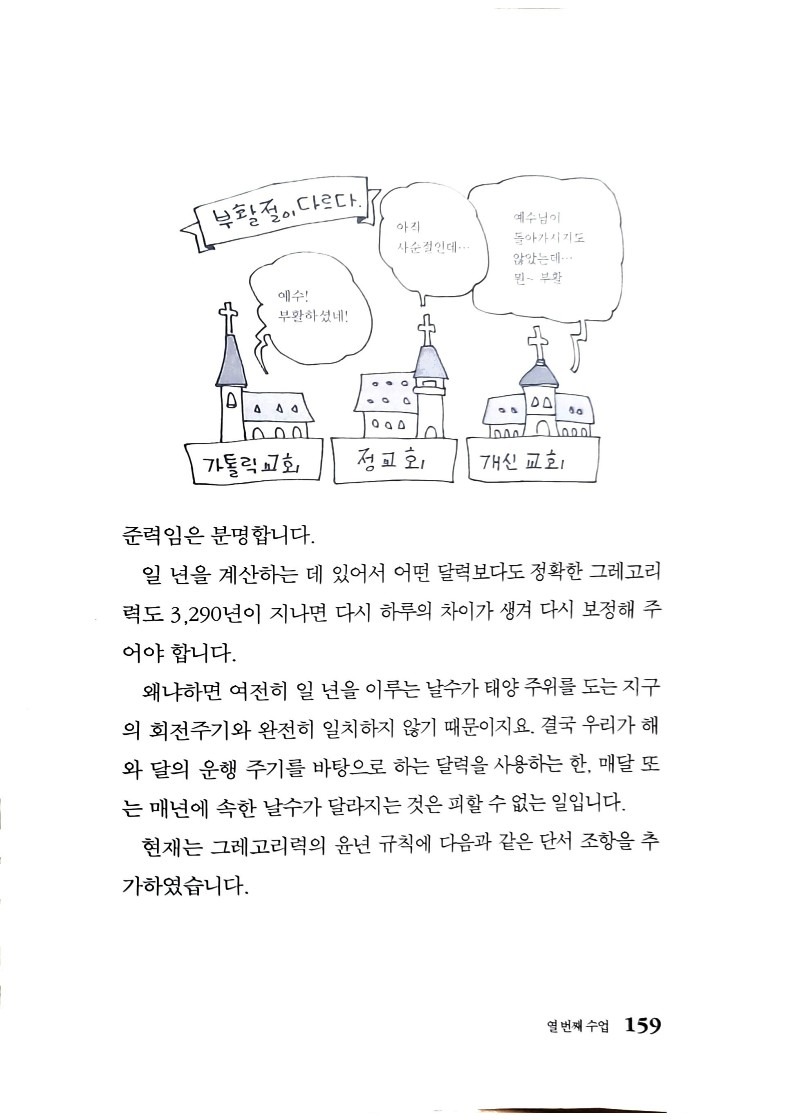 부활절이 다르다.
아직
사순절인데…
예수님이
돌아가시기도
않았는데…
뭔~ 부활
예수!
부활하셨네!
가톨릭교회
정교회
개신교회
준력임은 분명합니다.
일 년을 계산하는 데 있어서 어떤 달력보다도 정확한 그레고리
력도 3,290년이 지나면 다시 하루의 차이가 생겨 다시 보정해 주
어야 합니다.
왜냐하면 여전히 일 년을 이루는 날수가 태양 주위를 도는 지구
의 회전주기와 완전히 일치하지 않기 때문이지요. 결국 우리가 해
와 달의 운행 주기를 바탕으로 하는 달력을 사용하는 한, 매달 또
는 매년에 속한 날수가 달라지는 것은 피할 수 없는 일입니다.
현재는 그레고리력의 윤년 규칙에 다음과 같은 단서 조항을 추
가하였습니다.
열 번째 수업 159